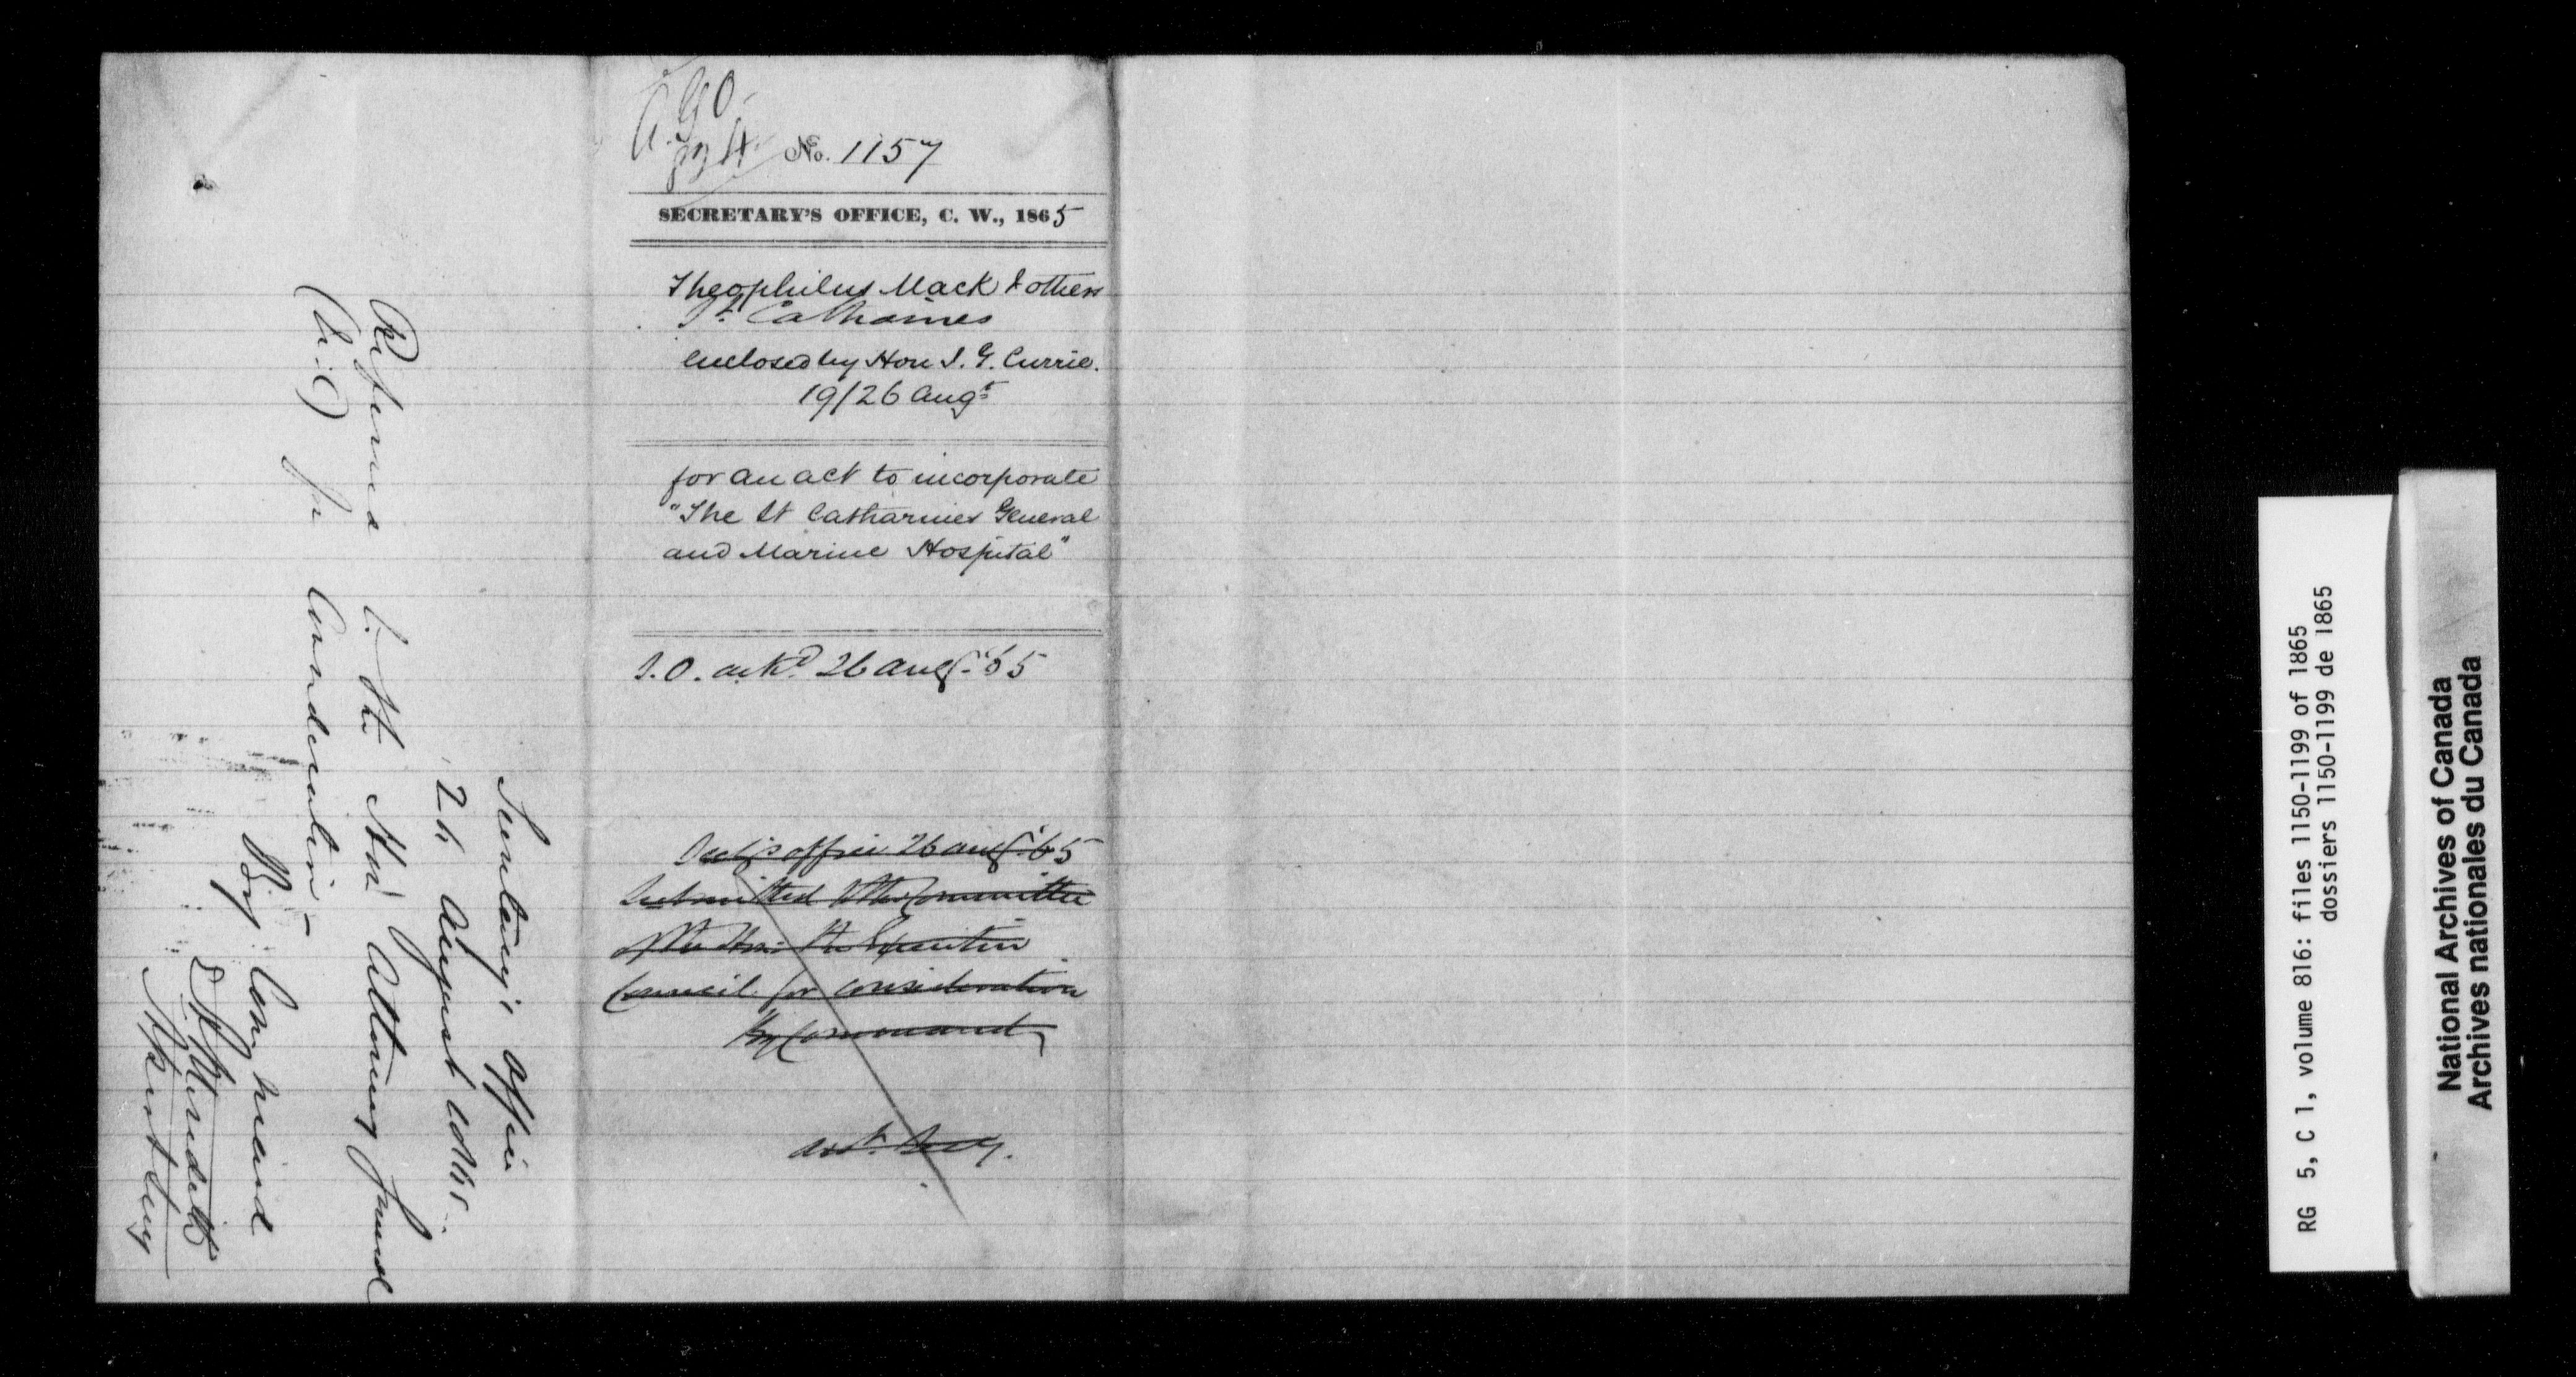 A.G.O.
834. No. 1157
SECRETARY'S OFFICE, C. W., 1865
Theophilus Mack & others
St. Catharines
enclosed by Hon J. G. Currie.
19/26 Augt
for an act to incorporate
"The St Catharines General
and Marine Hospital"
ackd. 26 Aug. '65
Secy's office 26 Aug. '65
Submitted to the Committee
of the Hon: the Executive
Council for consideration
By Command
Asst. Secy.
Secretary's Office
26 August 1865.
Referred to the Hon Attorney General
(U.C) for Consideration -
By Command
E A Meredith
Asst Secy
RG 5, C 1, volume 816: files 1150-1199 of 1865
dossiers 1150-1199 de 1865
National Archives of Canada
Archives nationales du Canada